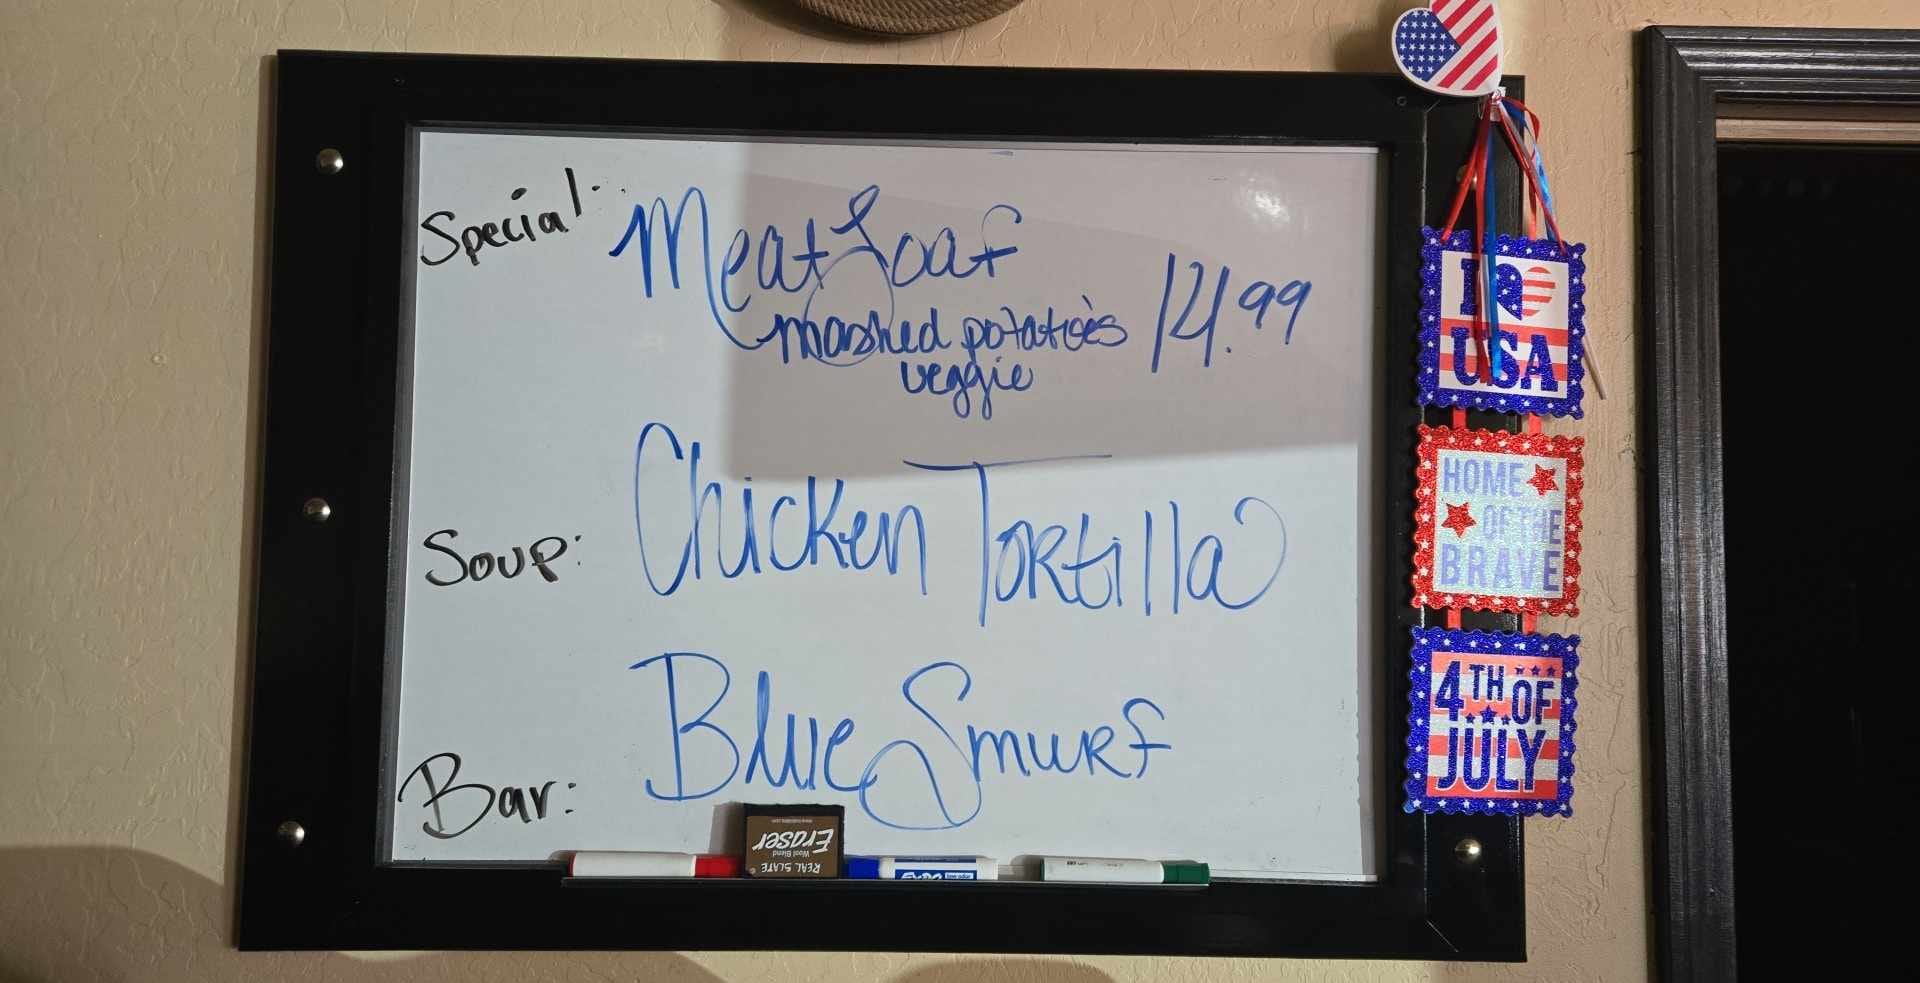 Special:
Meat Loaf
mashed potatoes 14.99
veggie
Soup: Chicken Tortilla
Bar: Blue Smurf
Eraser
Wool Blend
REAL SLATE
EXPO low odor
I USA
HOME OF THE BRAVE
4TH OF JULY